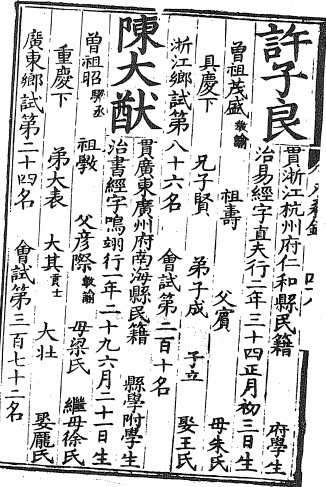 許子良
貫浙江杭州府仁和縣民籍 府學生
治易經字直夫行二年三十四正月初三日生
曾祖茂盛教諭 祖壽 父賓 母朱氏
具慶下 兄子賢 弟子成 子立 娶王氏
浙江鄉試第八十六名 會試第二百十名
陳大猷
貫廣東廣州府南海縣民籍 縣學附學生
治書經字鳴翊行一年二十九六月二十一日生
曾祖昭驛丞 祖斆 父彥際教諭 母梁氏 繼母徐氏
重慶下 弟大表 大其貢士 大壯 娶龐氏
廣東鄉試第二十四名 會試第三百七十二名